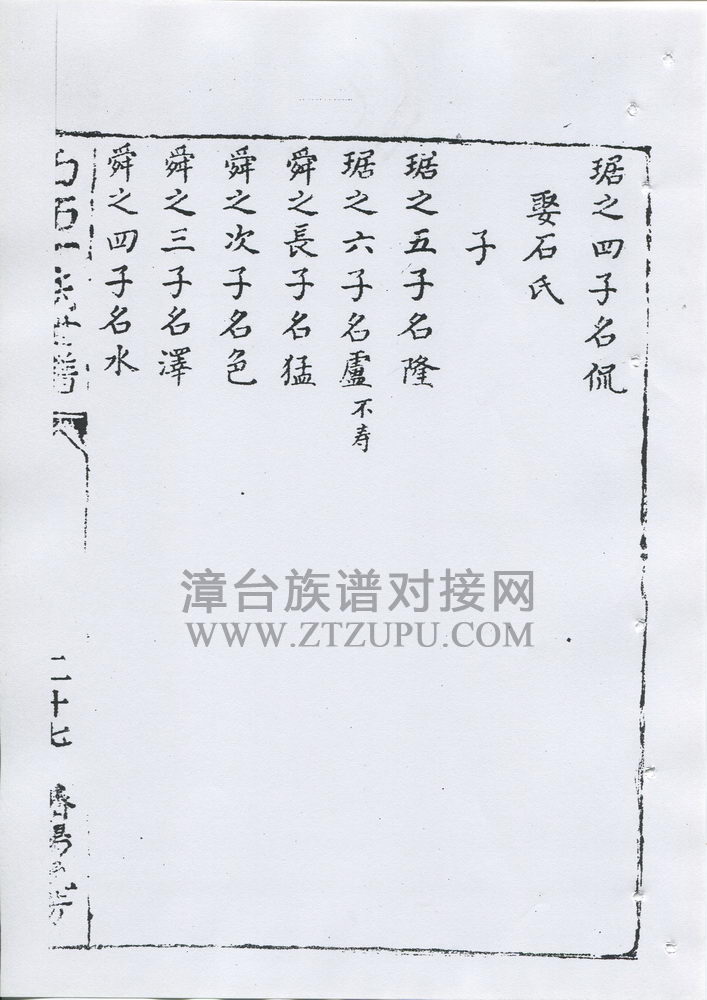 琚之四子名侃
娶石氏
子
琚之五子名隆
琚之六子名盧不寿
舜之長子名猛
舜之次子名色
舜之三子名澤
舜之四子名水
二十七
漳台族谱对接网
WWW.ZTZUPU.COM